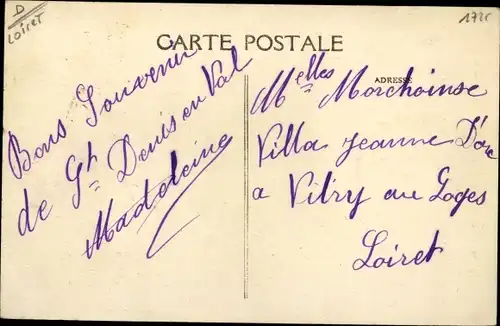 D
Loiret
1725
CARTE POSTALE
Bons Souvenir
de St Denis en Val
Madeleine
ADRESSE
Melles Morchoinse
Villa Jeanne D'arc
a Vitry au Loges
Loiret